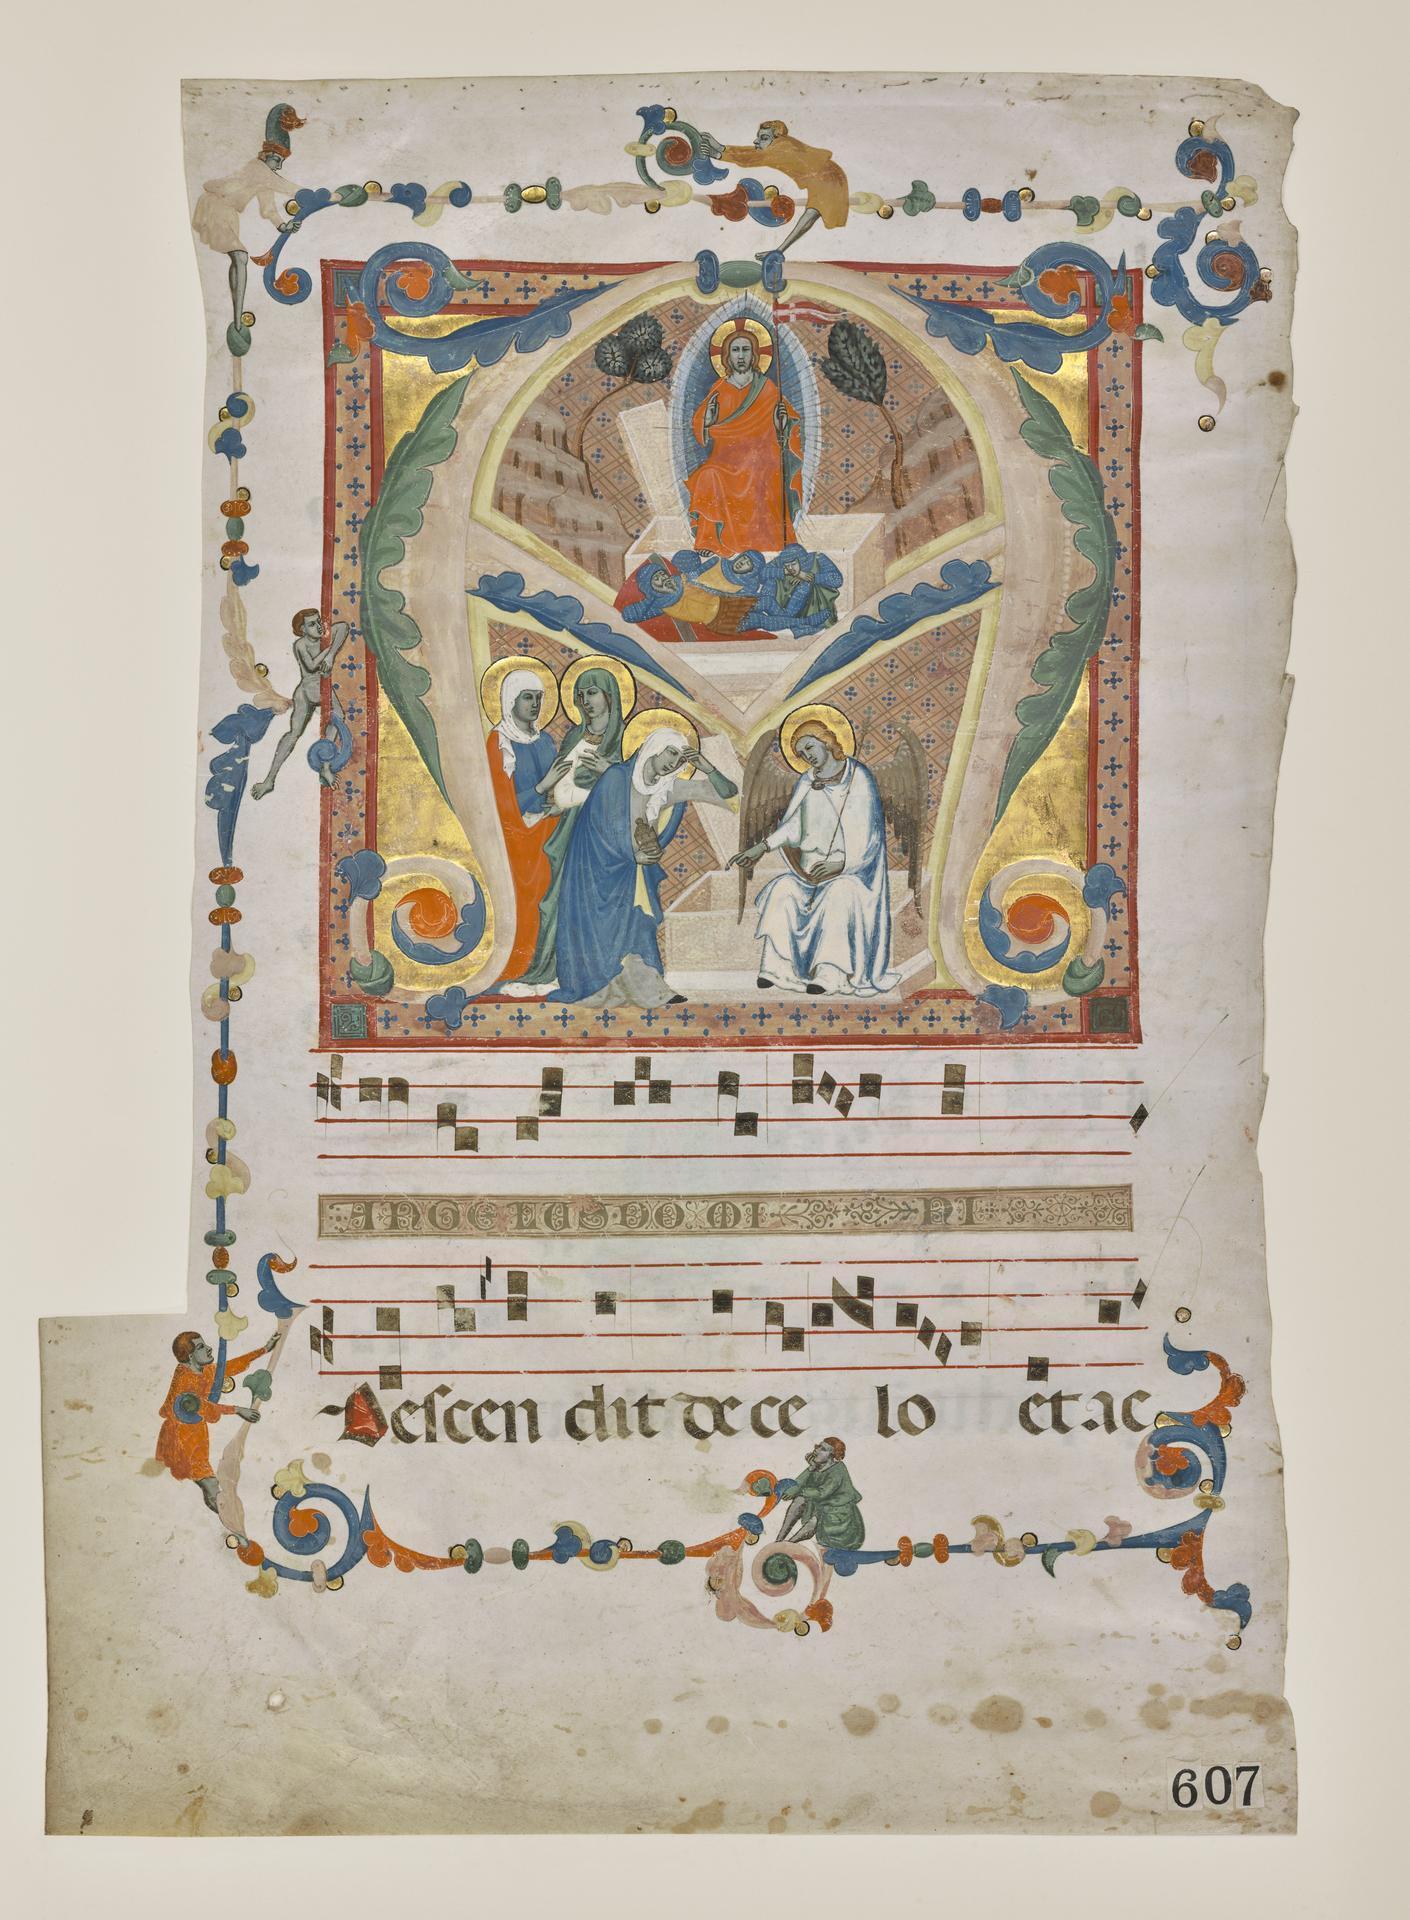 ANGELUS DOMI NI
Descen dit de ce lo et ac
607